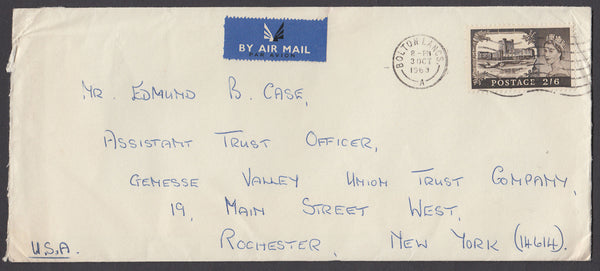 BY AIR MAIL
PAR AVION
BOLTON LANCS.
8-PM
3 OCT
1963
A
POSTAGE 2/6
MR. EDMUND B. CASE,
ASSISTANT TRUST OFFICER,
GEMESSE VALLEY UNION TRUST COMPANY,
19, MAIN STREET WEST,
ROCHESTER, NEW YORK (14614).
U.S.A.